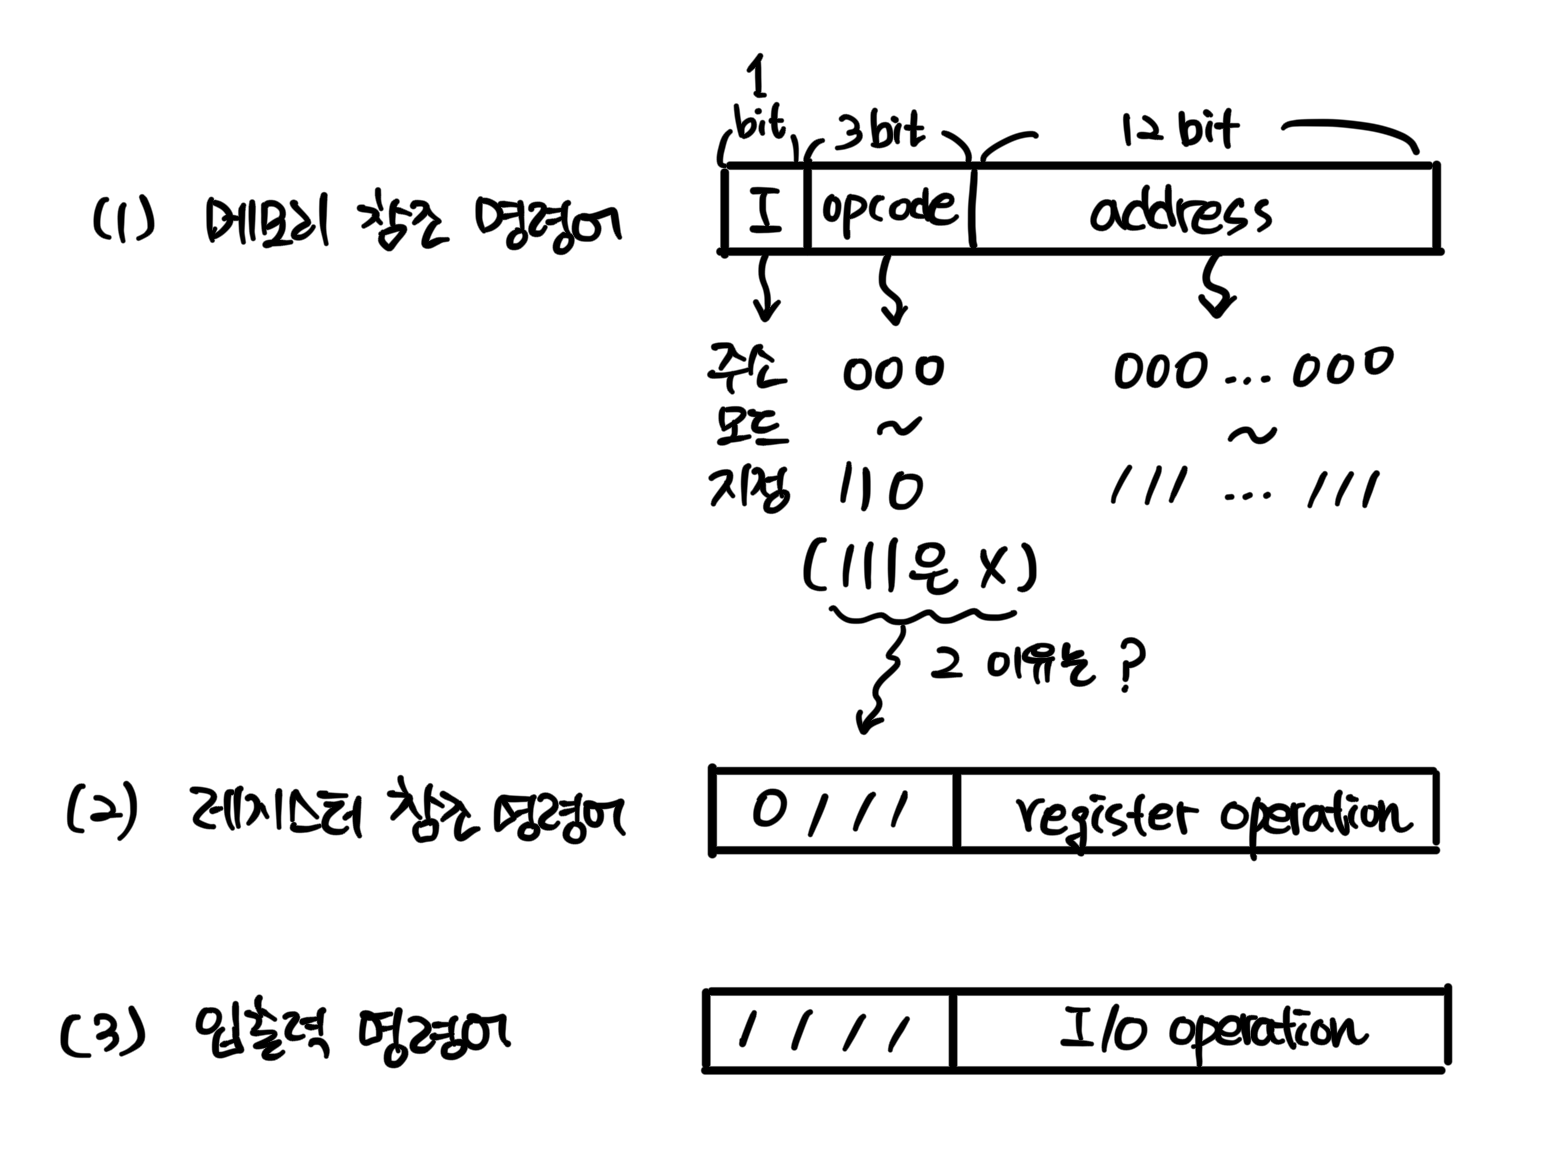 1
bit 3 bit 12 bit
(1) 메모리 참조 명령어 I opcode address
주소 000 000 ... 000
모드 ~ ~
지정 110 111 ... 111
(111은 X)
2 이유는 ?
(2) 레지스터 참조 명령어 0111 register operation
(3) 입출력 명령어 1111 I/O operation